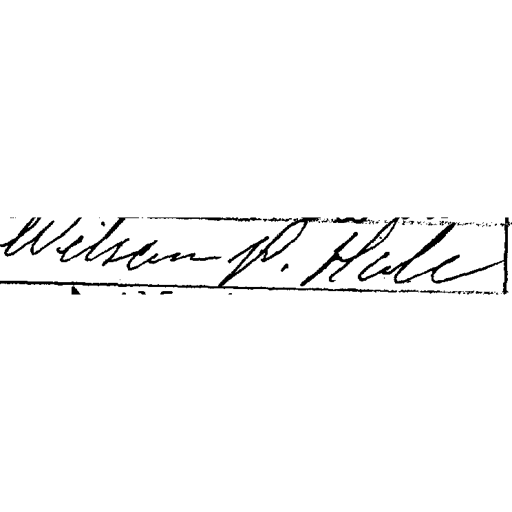 Wilson P. Hale